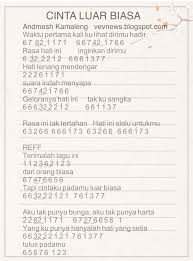 CINTA LUAR BIASA
Andmesh Kamaleng vevnews.blogspot.com
Waktu pertama kali ku lihat dirimu hadir
67 62 1171 66742 1766
Rasa hati ini inginkan dirimu
6 32 2212 6661377
Hati tenang mendengar
22621 1171
suara indah menyapa
66742 1766
Geloranya hati ini tak ku sangka
66632 2212 661377
Rasa ini tak tertahan Hati ini slalu untukmu
63266 666173 63266 666173
REFF
Terimalah lagu ini
1112363 123
dari orang biasa
6747656
Tapi cintaku padamu luar biasa
6632 2212 1 761377
Aku tak punya bunga, aku tak punya harta
2262 1171 67276656 1
Yang ku punya hanyalah hati yang setia
6 632 221 2 1 761377
tulus padamu
65676 123